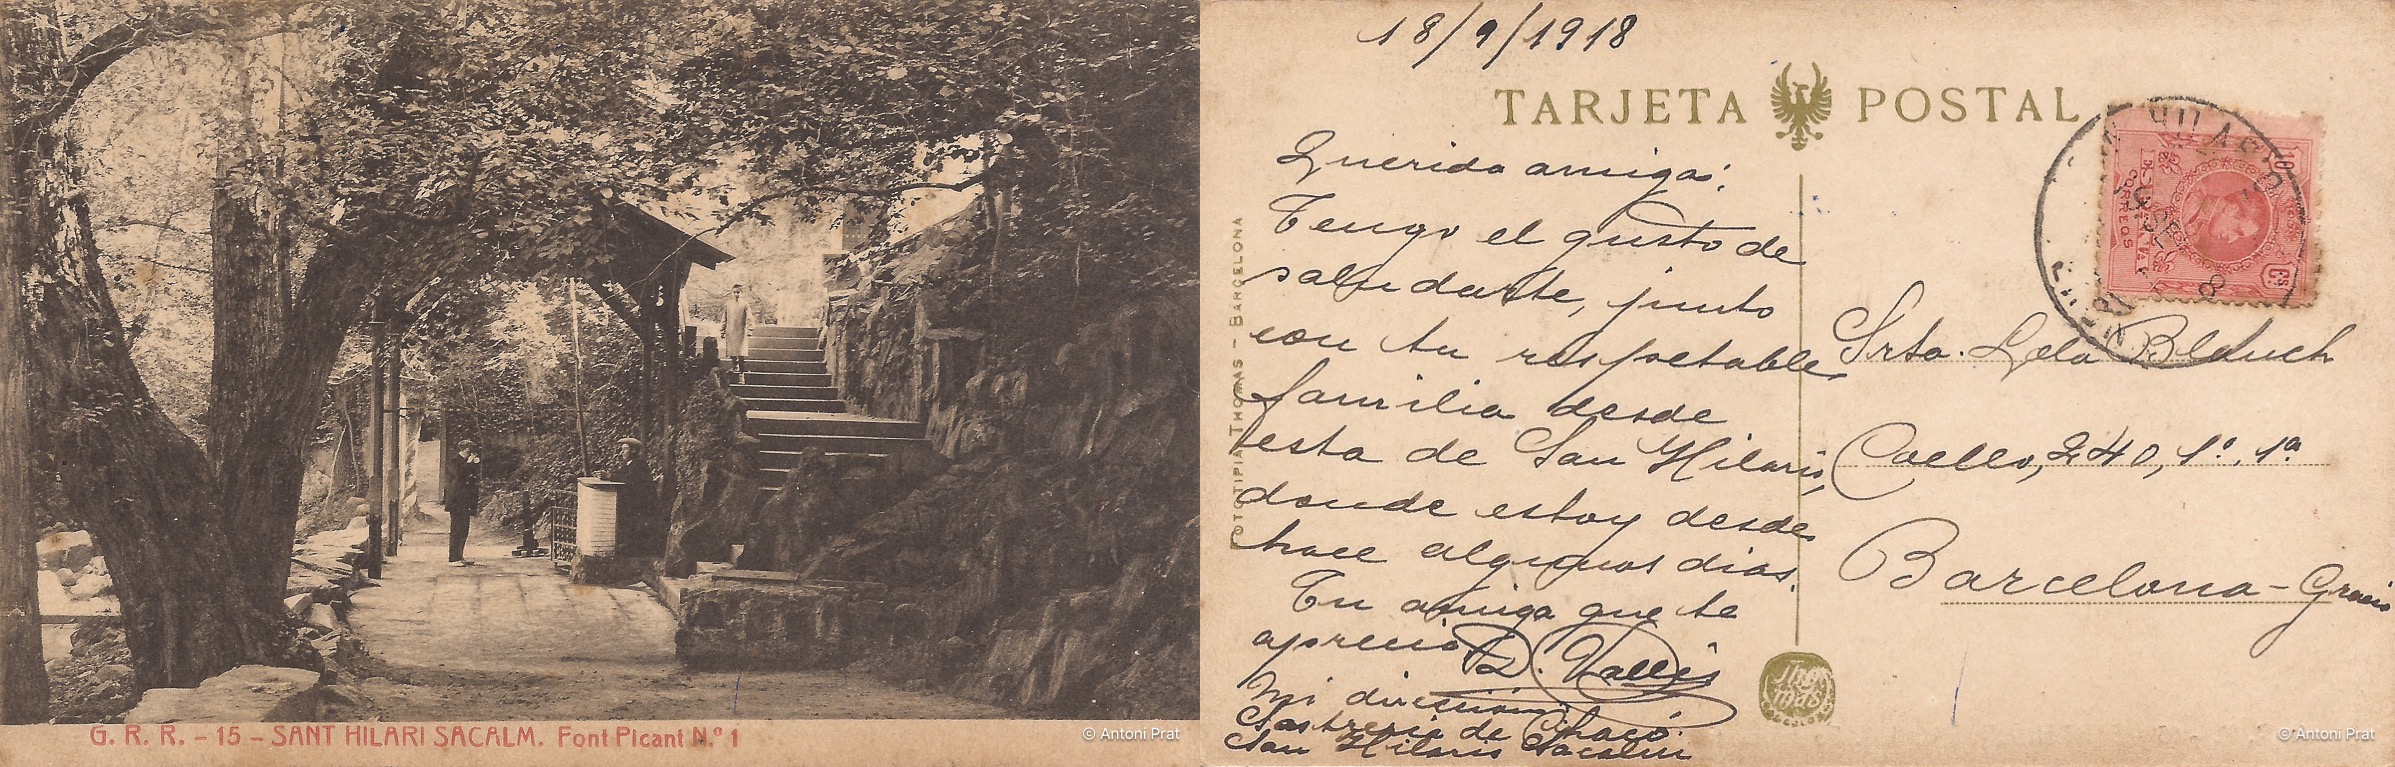 G. R. R. - 15 - SANT HILARI SACALM. Font Picant N.º 1
© Antoni Prat
18/9/1918
TARJETA POSTAL
Querida amiga:
Tengo el gusto de
saludarte, junto
con tu respetable
familia desde
esta de San Hilario,
donde estoy desde
hace algunos dias.
Tu amiga que te
aprecia
R. Vallés
Mi direccion:
Sastreria de
San Hilario Sacalm
FOTOTIPIA THOMAS - BARCELONA
Thomas
BARCELONA
10 Cs
CORREOS
SAN HILARIO
Srta. Lola Blanch
Coello, 240, 1º, 1ª
Barcelona - Gracia
© Antoni Prat